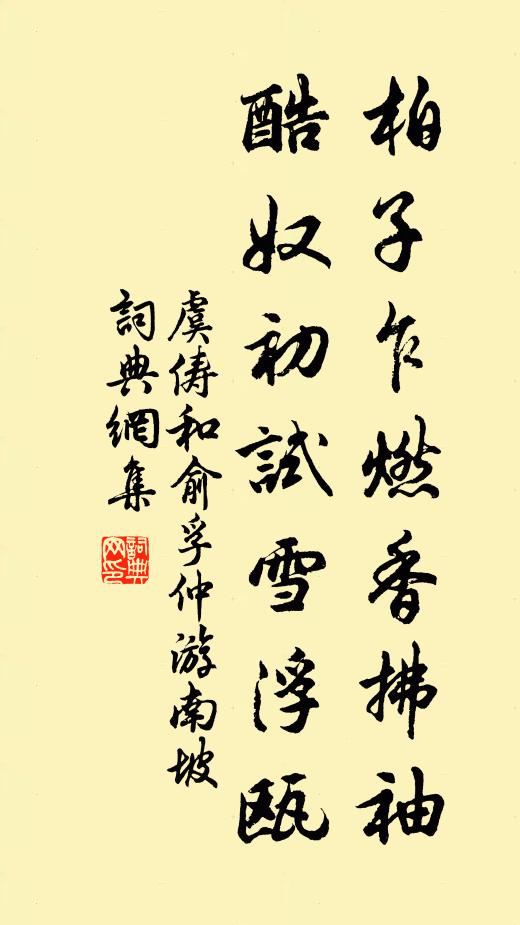 柏子乍燃香拂袖
酷奴初試雪浮甌
虞儔和俞孚仲游南坡
詞典網集
詞典網印